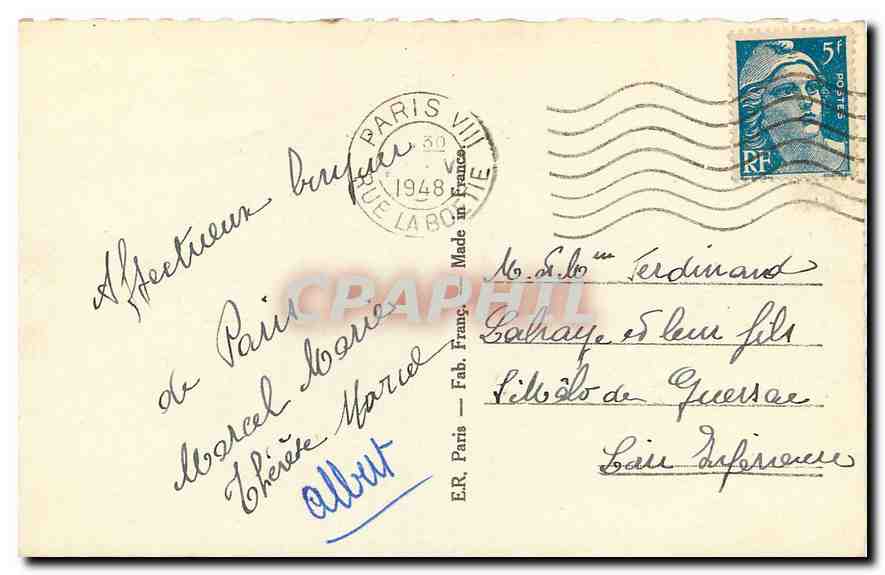 PARIS VIII
30
V
1948
RUE LA BOETIE
5f
POSTES
RF
Affectueux bonjour
de Paris
Marcel Marie
Thérèse Marcel
Albert
E.R, Paris — Fab. Franç. Made in France.
M. et Mme Ferdinand
Lahaye et leur fils
St Malo de Guersac
Loire Inférieure
CPAPHIL